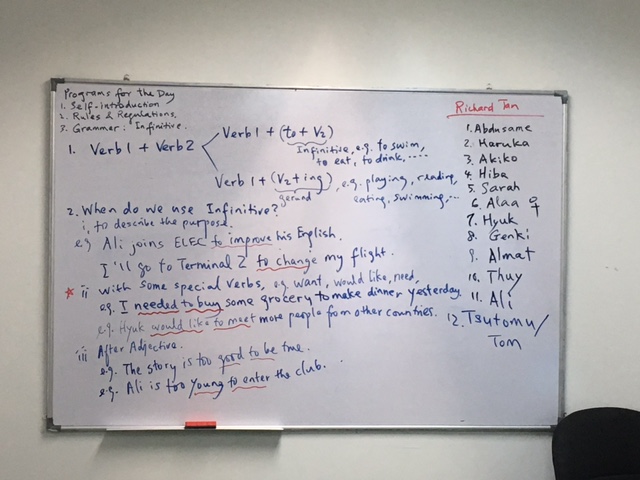 Programs for the Day
1. Self-introduction
2. Rules & Regulations.
3. Grammer: Infinitive.
1. Verb1 + Verb2
Verb1 + (to + V2)
Infinitive, e.g. to swim,
to eat, to drink, .....
Verb1 + (V2+ing), e.g. playing, reading,
gerund
eating, swimming, ...
2. When do we use Infinitive?
i, to describe the purpose.
e.g Ali joins ELEC to improve his English.
I'll go to Terminal 2 to change my flight.
★ ii with some special verbs, e.g. want, would like, need,
eg. I needed to buy some grocery to make dinner yesterday.
e.g. Hyuk would like to meet more people from other countries.
iii After Adjective.
e.g. The story is too good to be true.
e.g. Ali is too young to enter the club.
Richard Tan
1. Abdusame
2. Haruka
3. Akiko
4. Hiba
5. Sarah
6. Alaa ♀
7. Hyuk
8. Genki
9. Almat
10. Thuy
11. Ali
12. Tsutomu/
Tom